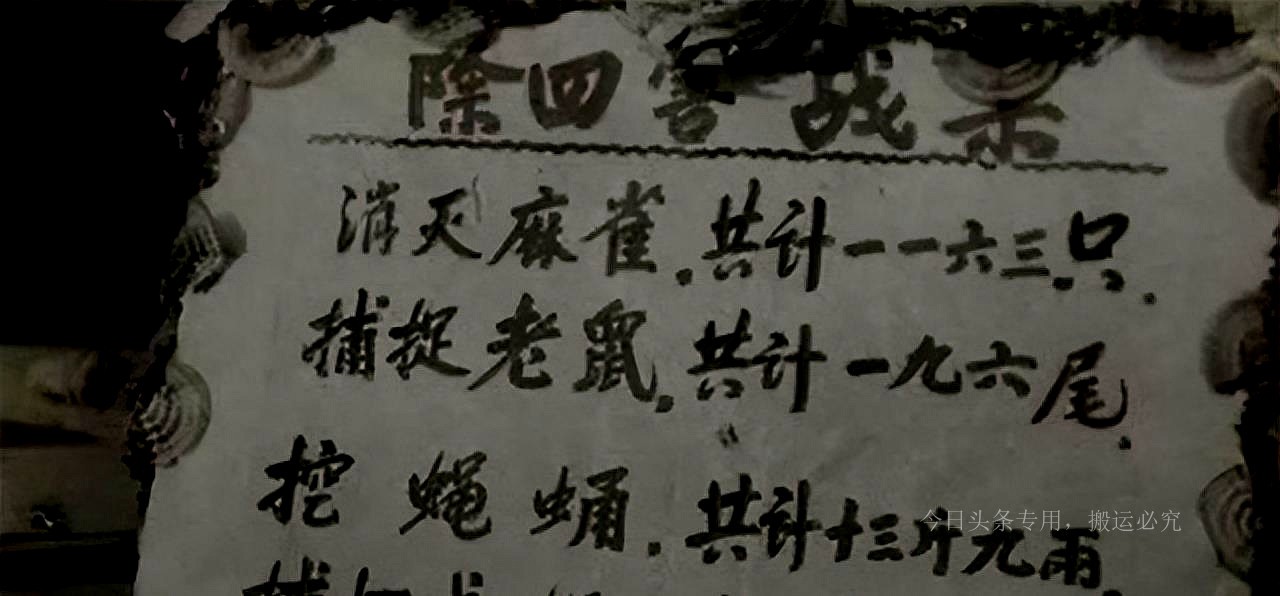 除四害战示
消灭麻雀.共计一一六三只.
捕捉老鼠.共计一九六尾.
挖蝇蛹.共计十三斤九雨.
今日头条专用，搬运必究